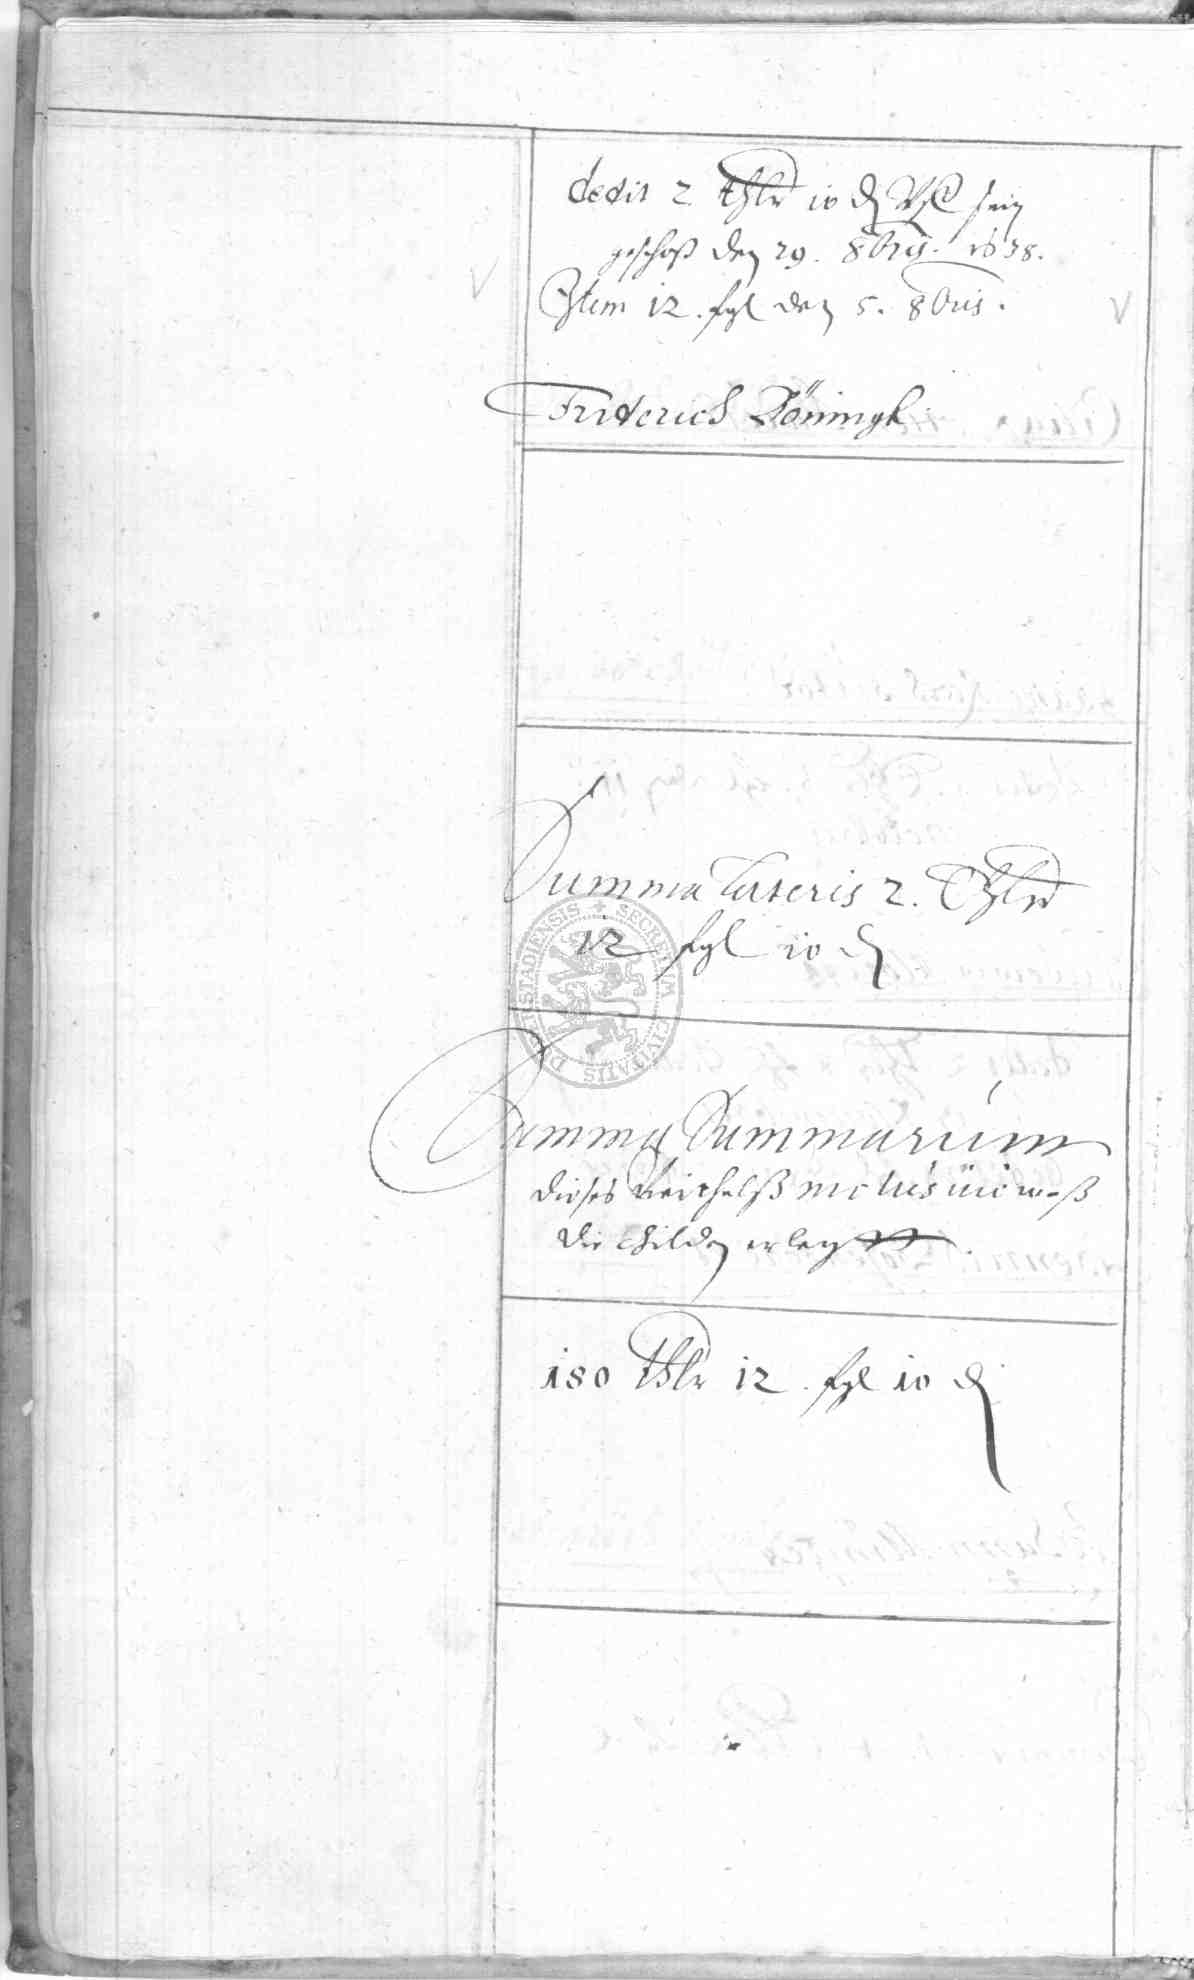 dedit 2 thlr 10 ₰ sein
geschoß den 29. 8bris. 1638.
Item 12. sgl den 5. 8bris.
Friderich Döningk.
Summa lateris 2. Thlr
12 sgl 10 ₰
SECRETUM CIVITATIS DARMSTADIENSIS
Summa Summarum
dieses
die Gilden erlegtt.
180 thlr 12. sgl 10 ₰